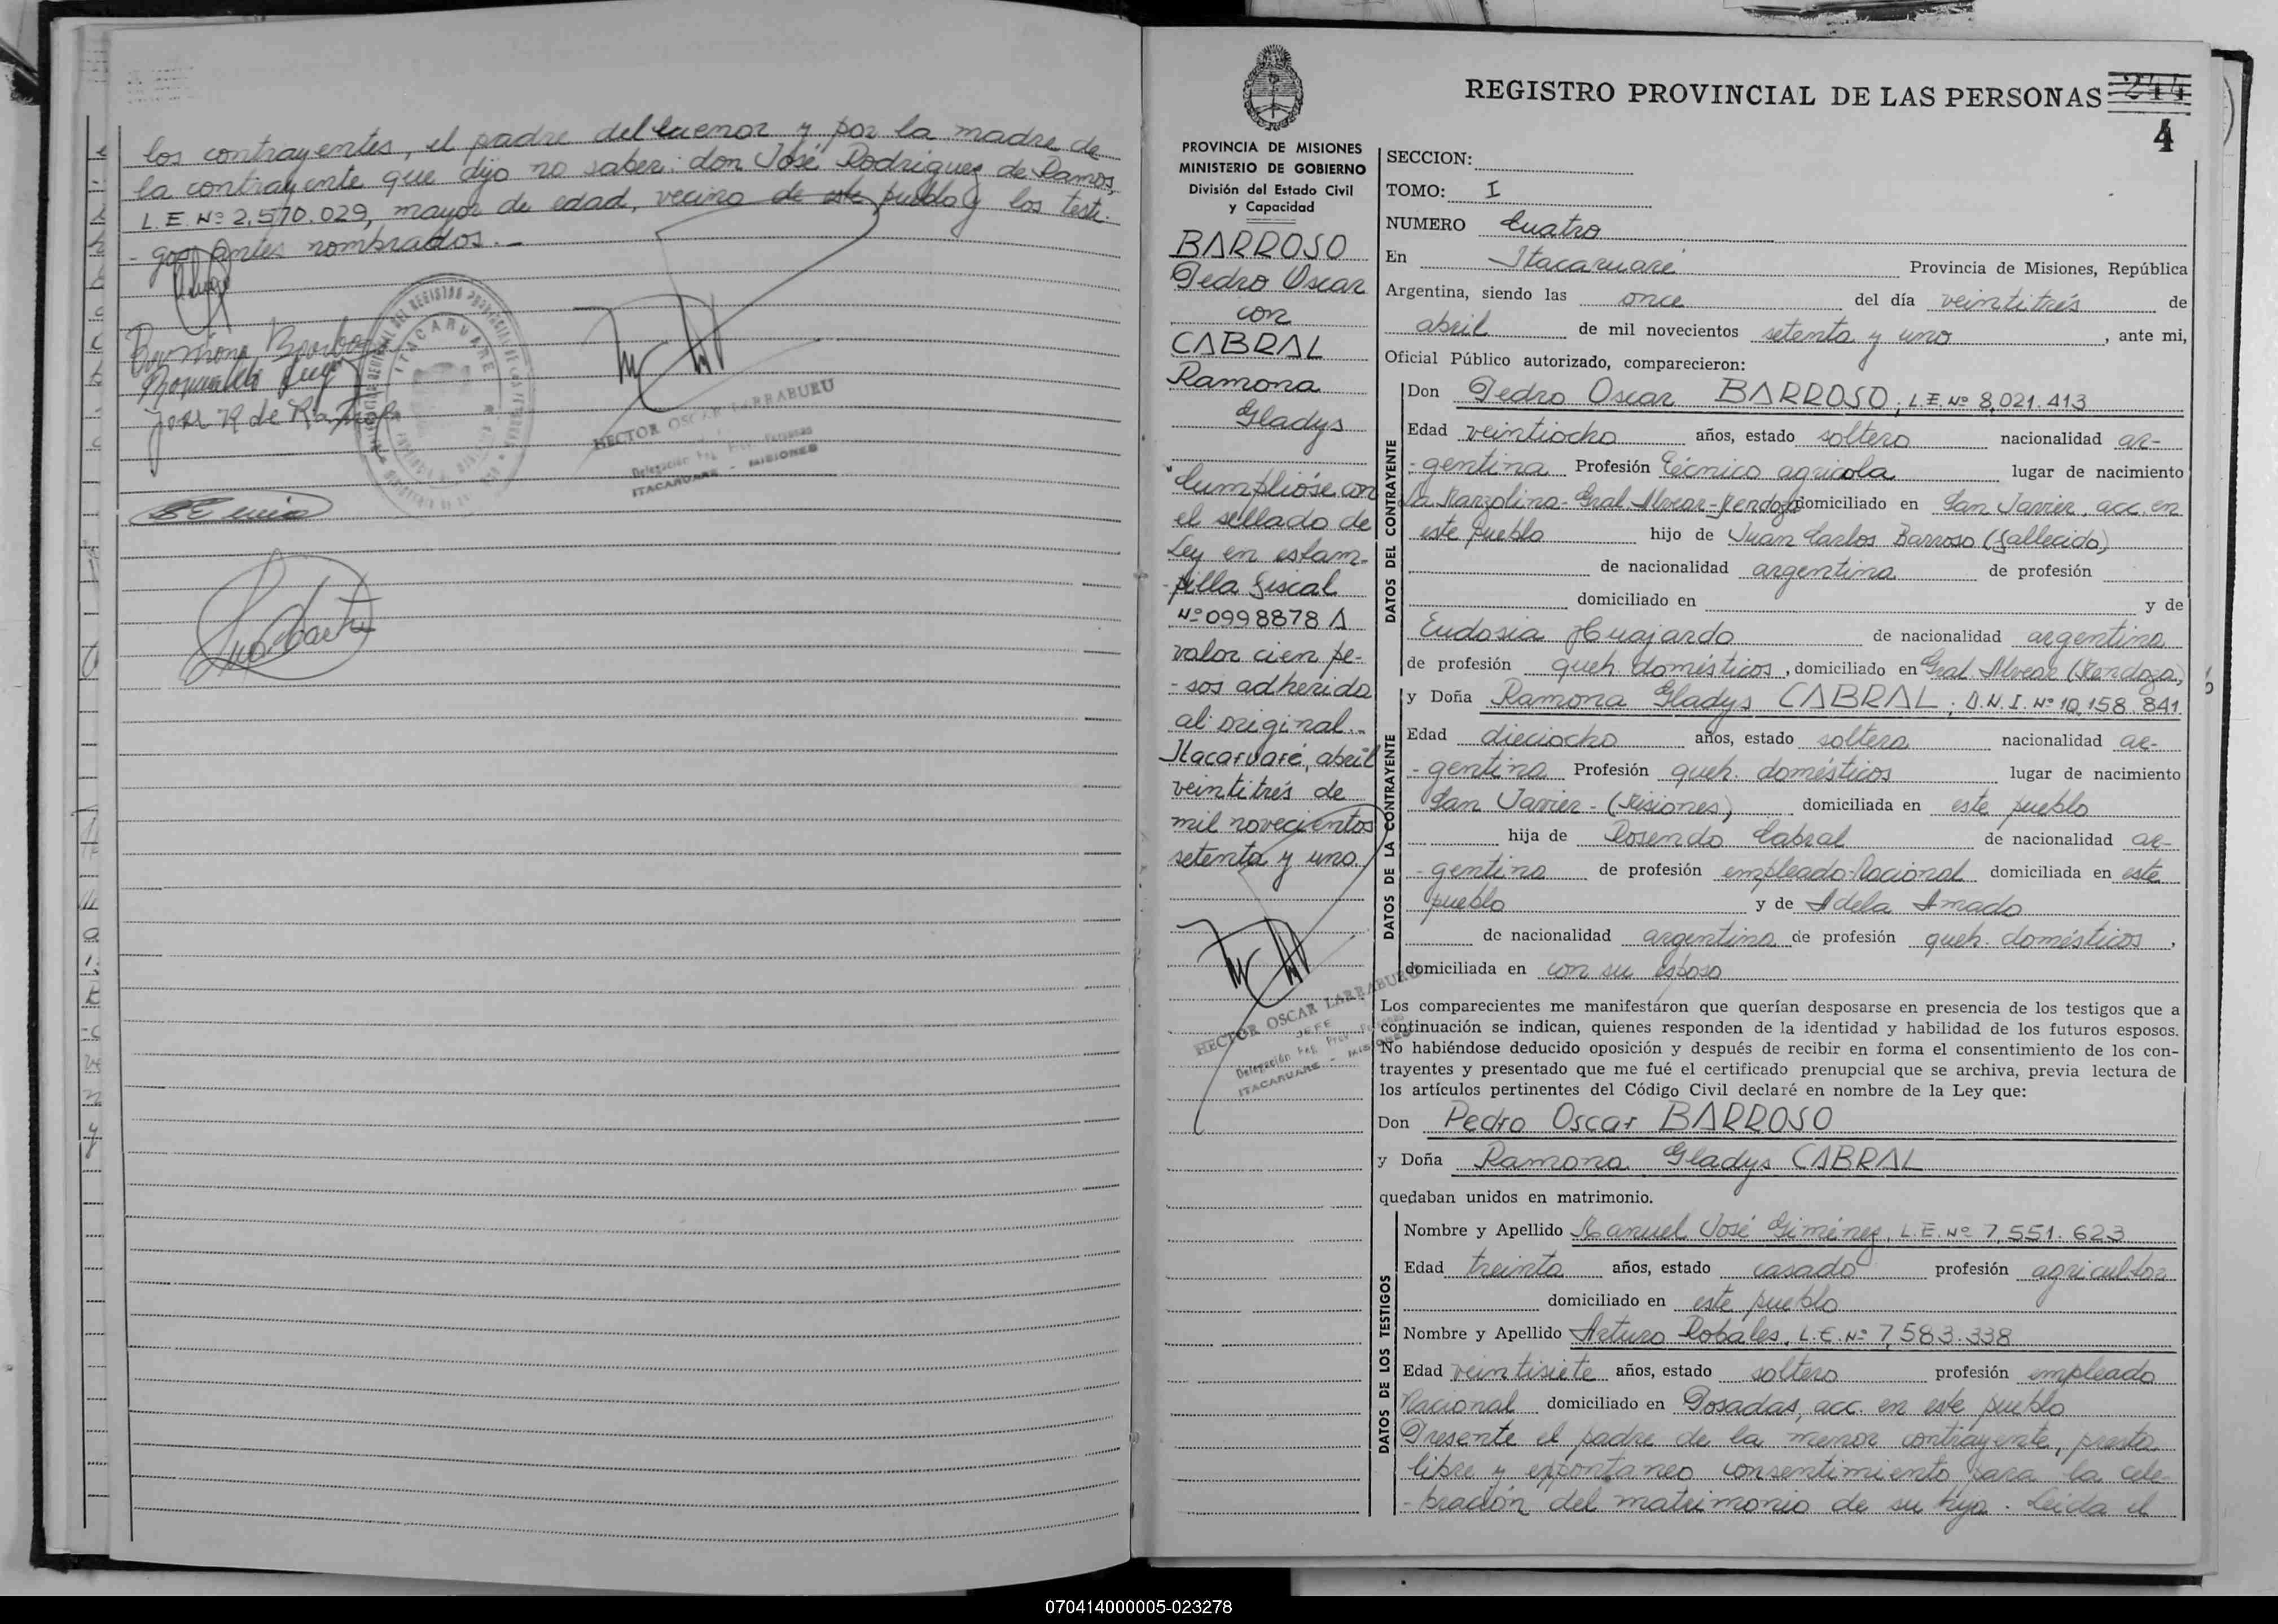 los contrayentes, el padre del menor y por la madre de
la contrayente que dijo no saber: don José Rodriguez de Ramos,
L.E. Nº 2.570.029, mayor de edad, vecino de este pueblo y los testi-
- gos antes nombrados.-
Jose R de Ramos
ITACARUARE
HECTOR OSCAR LARRABURU
Delegación Reg. Prov. Personas
ITACARUARE - MISIONES
REGISTRO PROVINCIAL DE LAS PERSONAS 244
4
PROVINCIA DE MISIONES
MINISTERIO DE GOBIERNO
División del Estado Civil
y Capacidad
BARROSO
Pedro Oscar
con
CABRAL
Ramona
Gladys
Cumplióse con
el sellado de
Ley en estam-
- pilla fiscal
Nº 0998878 A
valor cien pe-
- sos adherida
al original.-
Itacaruaré, abril
veintitrés de
mil novecientos
setenta y uno.
HECTOR OSCAR LARRABURU
JEFE
Delegación Reg. Prov. Personas
ITACARUARE - MISIONES
SECCION:
TOMO: I
NUMERO Cuatro
En Itacaruaré Provincia de Misiones, República
Argentina, siendo las once del día veintitrés de
abril de mil novecientos setenta y uno, ante mi,
Oficial Público autorizado, comparecieron:
DATOS DEL CONTRAYENTE
Don Pedro Oscar BARROSO; L.E. Nº 8,021.413
Edad veintiocho años, estado soltero nacionalidad ar-
- gentina Profesión técnico agrícola lugar de nacimiento
La Marzolina - Gral Alvear - Mendoza domiciliado en San Javier, acc. en
este pueblo hijo de Juan Carlos Barroso (fallecido)
de nacionalidad argentina de profesión
domiciliado en y de
Eudosia Huajardo de nacionalidad argentina
de profesión queh. domésticos, domiciliado en Gral Alvear (Mendoza)
DATOS DE LA CONTRAYENTE
y Doña Ramona Gladys CABRAL; D.N.I. Nº 10,158.841
Edad dieciocho años, estado soltera nacionalidad ar-
- gentina Profesión queh. domésticos lugar de nacimiento
San Javier - (Misiones) domiciliada en este pueblo
hija de Rosendo Cabral de nacionalidad ar-
- gentina de profesión empleado Nacional domiciliada en este
pueblo y de Adela Amado
de nacionalidad argentina de profesión queh. domésticos,
domiciliada en con su esposo
Los comparecientes me manifestaron que querían desposarse en presencia de los testigos que a
continuación se indican, quienes responden de la identidad y habilidad de los futuros esposos.
No habiéndose deducido oposición y después de recibir en forma el consentimiento de los con-
trayentes y presentado que me fué el certificado prenupcial que se archiva, previa lectura de
los artículos pertinentes del Código Civil declaré en nombre de la Ley que:
Don Pedro Oscar BARROSO
y Doña Ramona Gladys CABRAL
quedaban unidos en matrimonio.
DATOS DE LOS TESTIGOS
Nombre y Apellido Manuel José Giménez, L.E. Nº 7.551.623
Edad treinta años, estado casado profesión agricultor
domiciliado en este pueblo
Nombre y Apellido Arturo Robales, L.E. Nº 7,583.338
Edad veintisiete años, estado soltero profesión empleado
Nacional domiciliado en Posadas, acc. en este pueblo
Presente el padre de la menor contrayente, presta
libre y expontaneo consentimiento para la cele-
- bración del matrimonio de su hija. Leida el
070414000005-023278